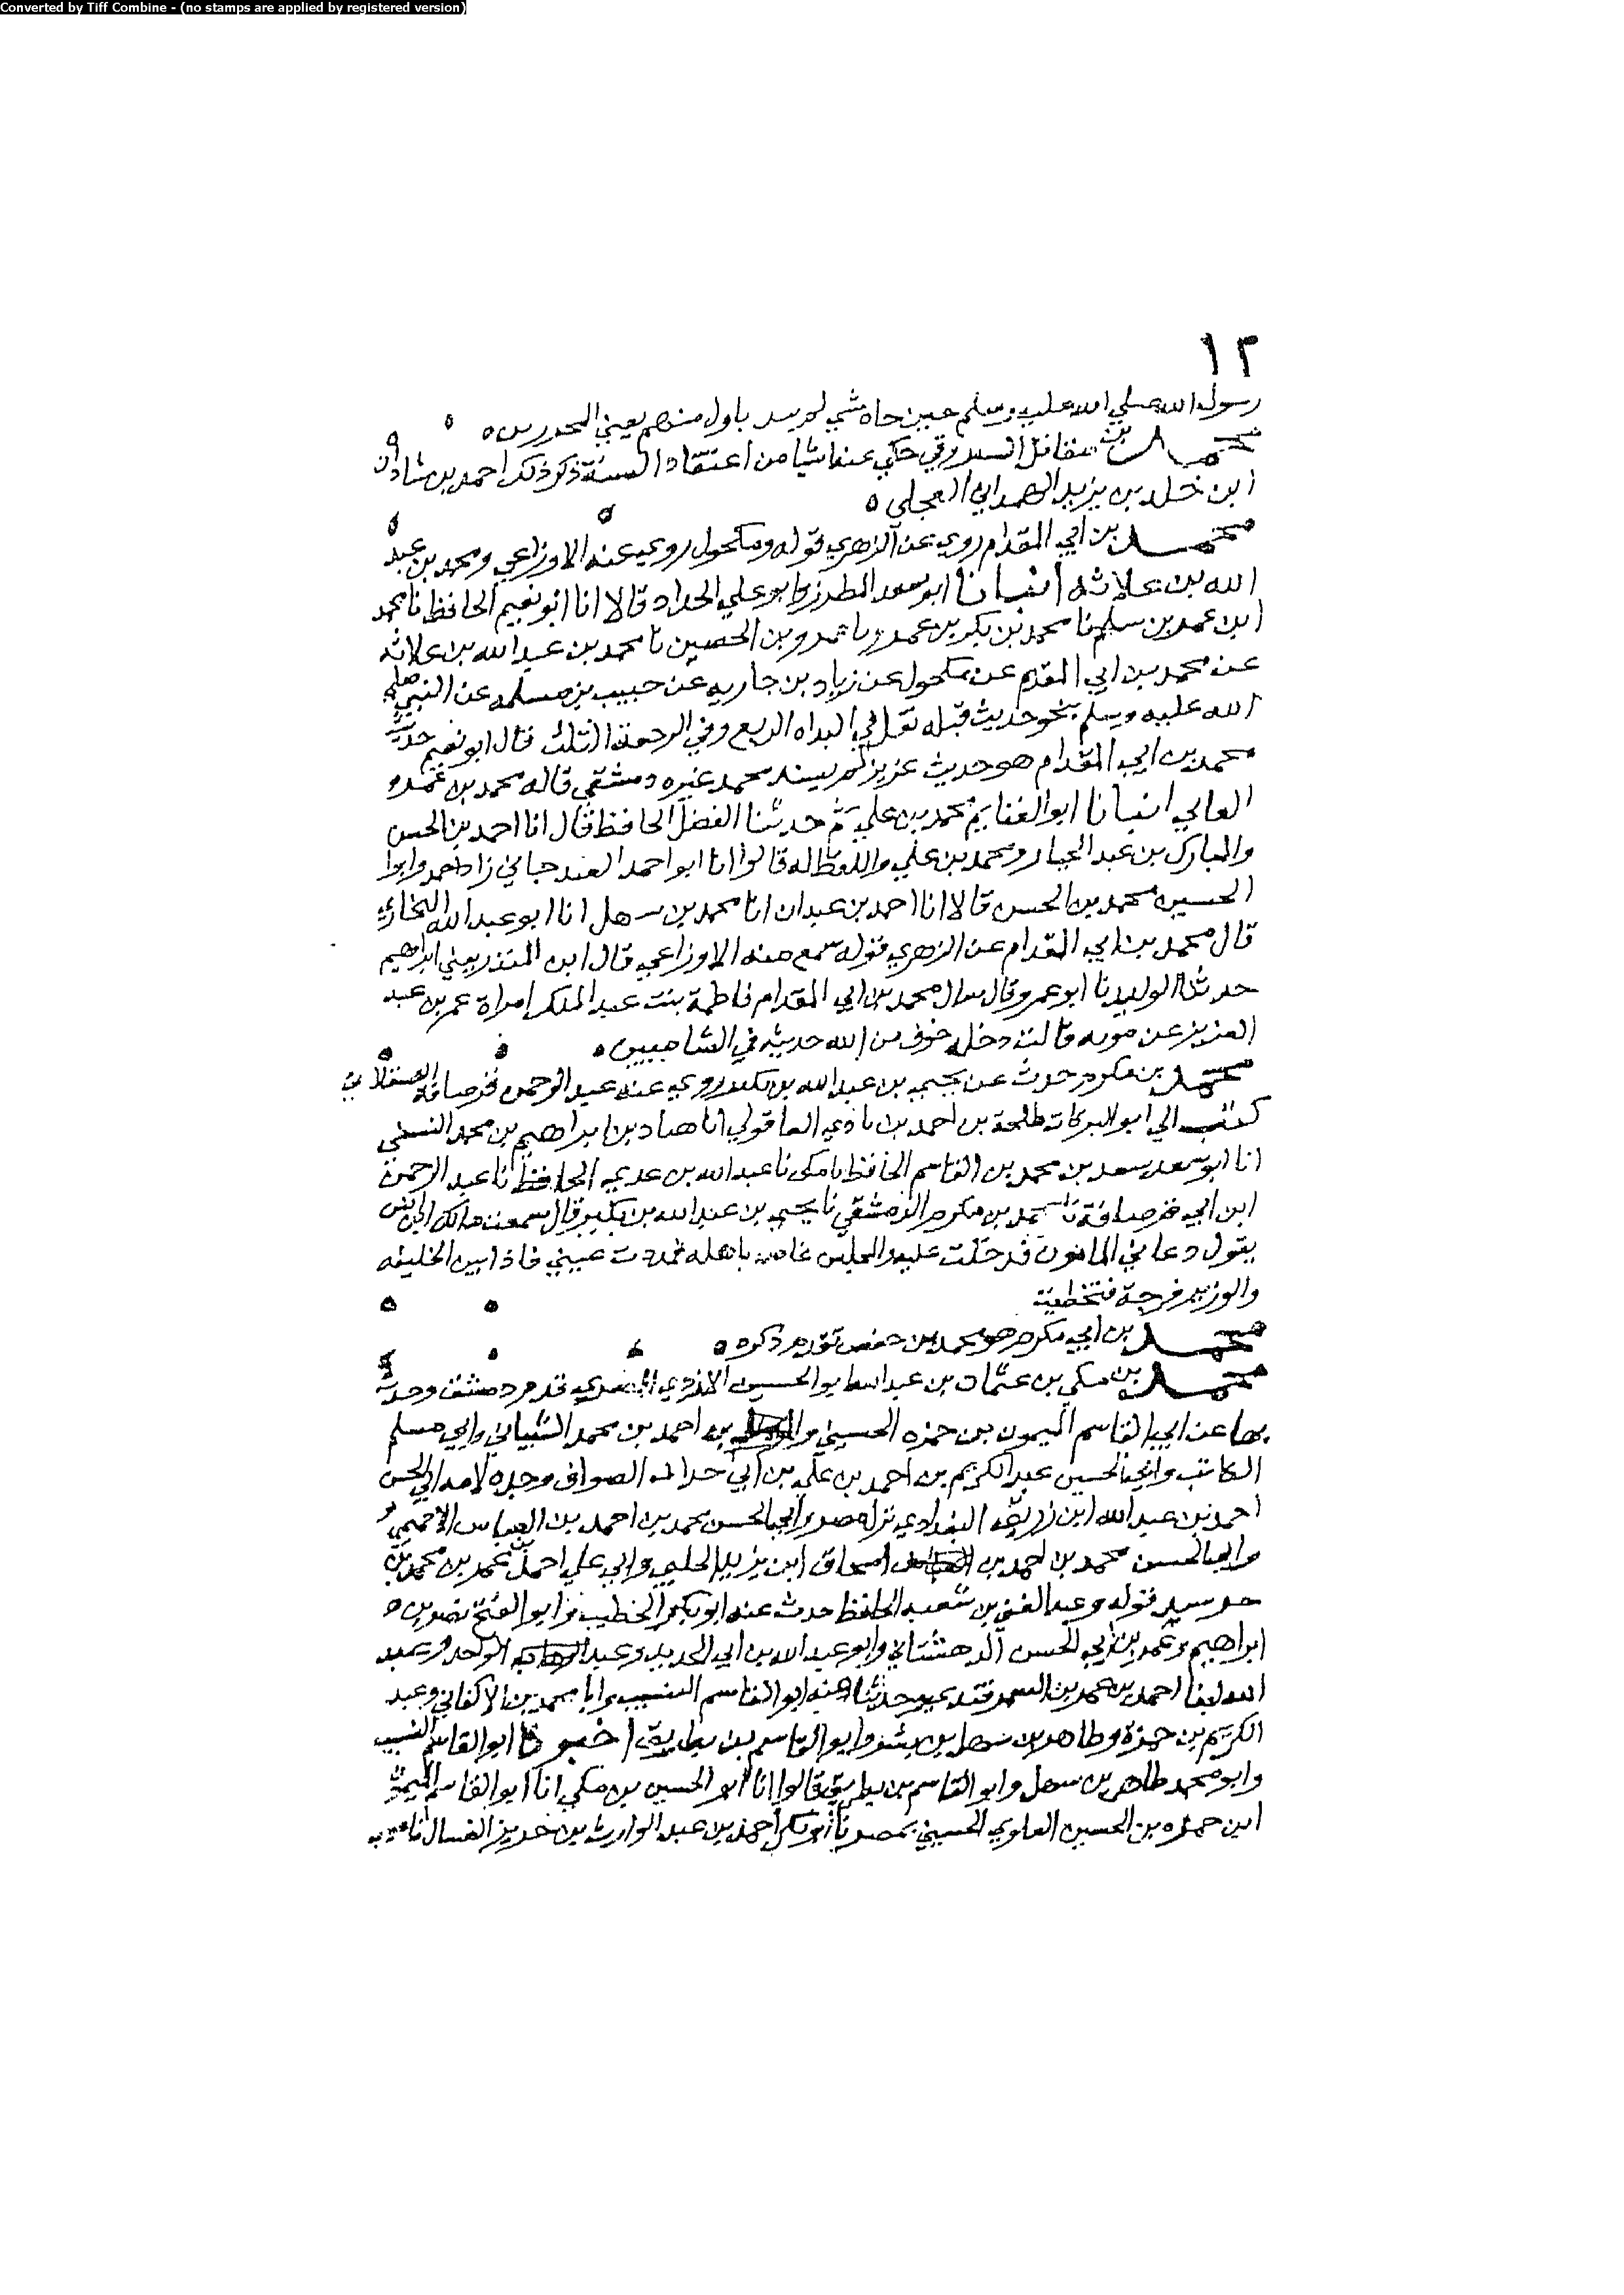 Converted by Tiff Combine - (no stamps are applied by registered version)
١٢
رسول الله صلى الله عليه وسلم حين جاه شي لم يبد باول منهم يعني
محمد بن مقاتل حكي عنه اشيا من اعتقاد السنة ذكر ذلك احمد بن شاذان
ابن خلد بن يزيد الهمداني العجلي
محمد بن ابي المقدام روي عن الزهري قوله ومكحول روى عنه الاوزاعي ومحمد بن عبد
الله بن علاثه انبانا ابو سعد المطرز وابو علي الحداد قالا انا ابو نعيم الحافظ نا محمد
ابن عمر بن سلم نا محمد بن بكر بن عمرو نا عمرو بن الحصين نا محمد بن عبد الله بن علاثه
عن محمد بن ابي المقدم عن مكحول عن زياد بن جاريه عن حبيب بن مسلمه عن النبي صلى
الله عليه وسلم نحو حديث قبله نفل في البداه الربع وفي الرجعة الثلث قال ابو نعيم حديث
محمد بن ابي المقدام هو حديث عزيز لم يسند محمد غيره دمشقي قاله محمد بن عمرو
انبانا ابو الغنايم محمد بن علي ثم حدثنا الفضل الحافظ قال انا احمد بن الحسن
والمبارك بن عبد الجبار ومحمد بن علي واللفظ له قالوا انا ابو احمد الغندجاني زاد احمد وابوا
الحسين محمد بن الحسن قالا انا احمد بن عبدان انا محمد بن سهل انا ابو عبد الله البخاري
قال محمد بن ابي المقدام عن الزهري قوله سمع منه الاوزاعي قال ابن المنذر يعني ابراهيم
حدثنا الوليد نا ابو عمرو قال سال محمد بن ابي المقدام فاطمة بنت عبد الملك امراة عمر بن عبد
العزيز عن موته قالت دخله خوف من الله حديثه في الشاميين
محمد بن مكرم حدث عن يحيى بن عبد الله بن بكير روى عنه عبد الرحمن قرصافة العسقلاني
كتب الي ابو البركات طلحة بن احمد بن بادي العاقولي انا هناد بن ابراهيم بن محمد النسفي
انا ابو سعد سعد بن محمد بن القاسم الحافظ نا مكي نا عبد الله بن عدي الحافظ نا عبد الرحمن
ابن ابي قرصافة نا محمد بن مكرم الدمشقي نا يحيى بن عبد الله بن بكير قال سمعت مالك بن انس
يقول دعاني المامون فدخلت عليه والمجلس غاص باهله فمددت عيني فاذا بين الخليفه
والوزير فرجة فتخطيت
محمد بن ابي مكرم هو محمد بن حفص تقدم ذكره
محمد بن مكي بن عثمان بن عبد الله ابو الحسين الازدي المصري قدم دمشق وحدث
بها عن ابي القاسم الميمون بن حمزه الحسيني بن احمد بن محمد الشيباني وابي مسلم
الكاتب وابي الحسين عبد الكريم بن احمد بن علي بن ابي الصواف وجده لامه ابي الحسن
احمد بن عبد الله ابن زريق البغدادي نزل مصر وابي الحسن محمد بن احمد بن العباس الاخميمي
وابي الحسن محمد بن احمد بن اسحاق ابن يزيد الحلبي وابي علي احمد بن عمر بن محمد بن
قوله وعبد الغني بن سعيد الحافظ حدث عنه ابو بكر الخطيب وابو الفتح نصر بن
ابراهيم وعمر بن ابي الحسن الدهستاني وابو عبد الله بن ابي الحديد وعبد الواحد وعبد
الله ابنا احمد بن عمر بن السمرقندي وحدثنا عنه ابو القاسم النسيب وابا محمد بن الاكفاني وعبد
الكريم بن حمزة وطاهر بن سهل بن بشر وابو القاسم بن بطريق اخبرنا ابو القاسم النسيب
وابو محمد طاهر بن سهل وابو القاسم بن بطريق قالوا انا ابو الحسين بن مكي انا ابو القاسم الميمون
ابن حمزه بن الحسين العلوي الحسيني بمصر نا ابو بكر احمد بن عبد الوارث بن جرير العسال